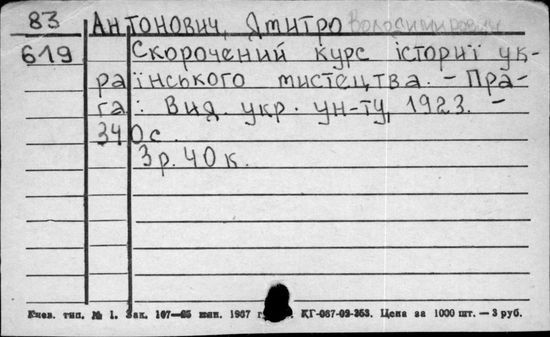 83 Антонович, Дмитро Володимирович
619 Скорочений курс історії ук-
раїнського мистецтва. – Пра-
га: Вид. укр. ун-ту, 1923. –
340с.
3р. 40к.
Киев. тип. № 1. Зак. 107—65 1967 г. КГ-087-02-353. Цена за 1000 шт. — 3 руб.